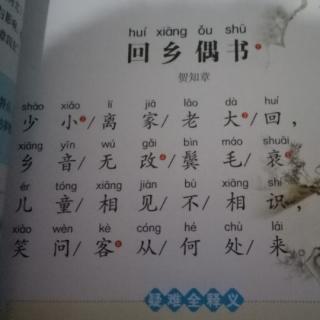 huí xiāng ǒu shū
回乡偶书
贺知章
shào xiǎo lí jiā lǎo dà huí
少小/离家/老大/回，
xiāng yīn wú gǎi bìn máo shuāi
乡音/无改/鬓毛/衰
ér tóng xiāng jiàn bù xiāng shí
儿童/相见/不相识，
xiào wèn kè cóng hé chù lái
笑问/客从/何处/来
疑难全释义